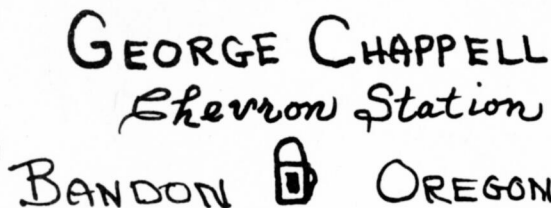 GEORGE CHAPPELL
Chevron Station
BANDON OREGON